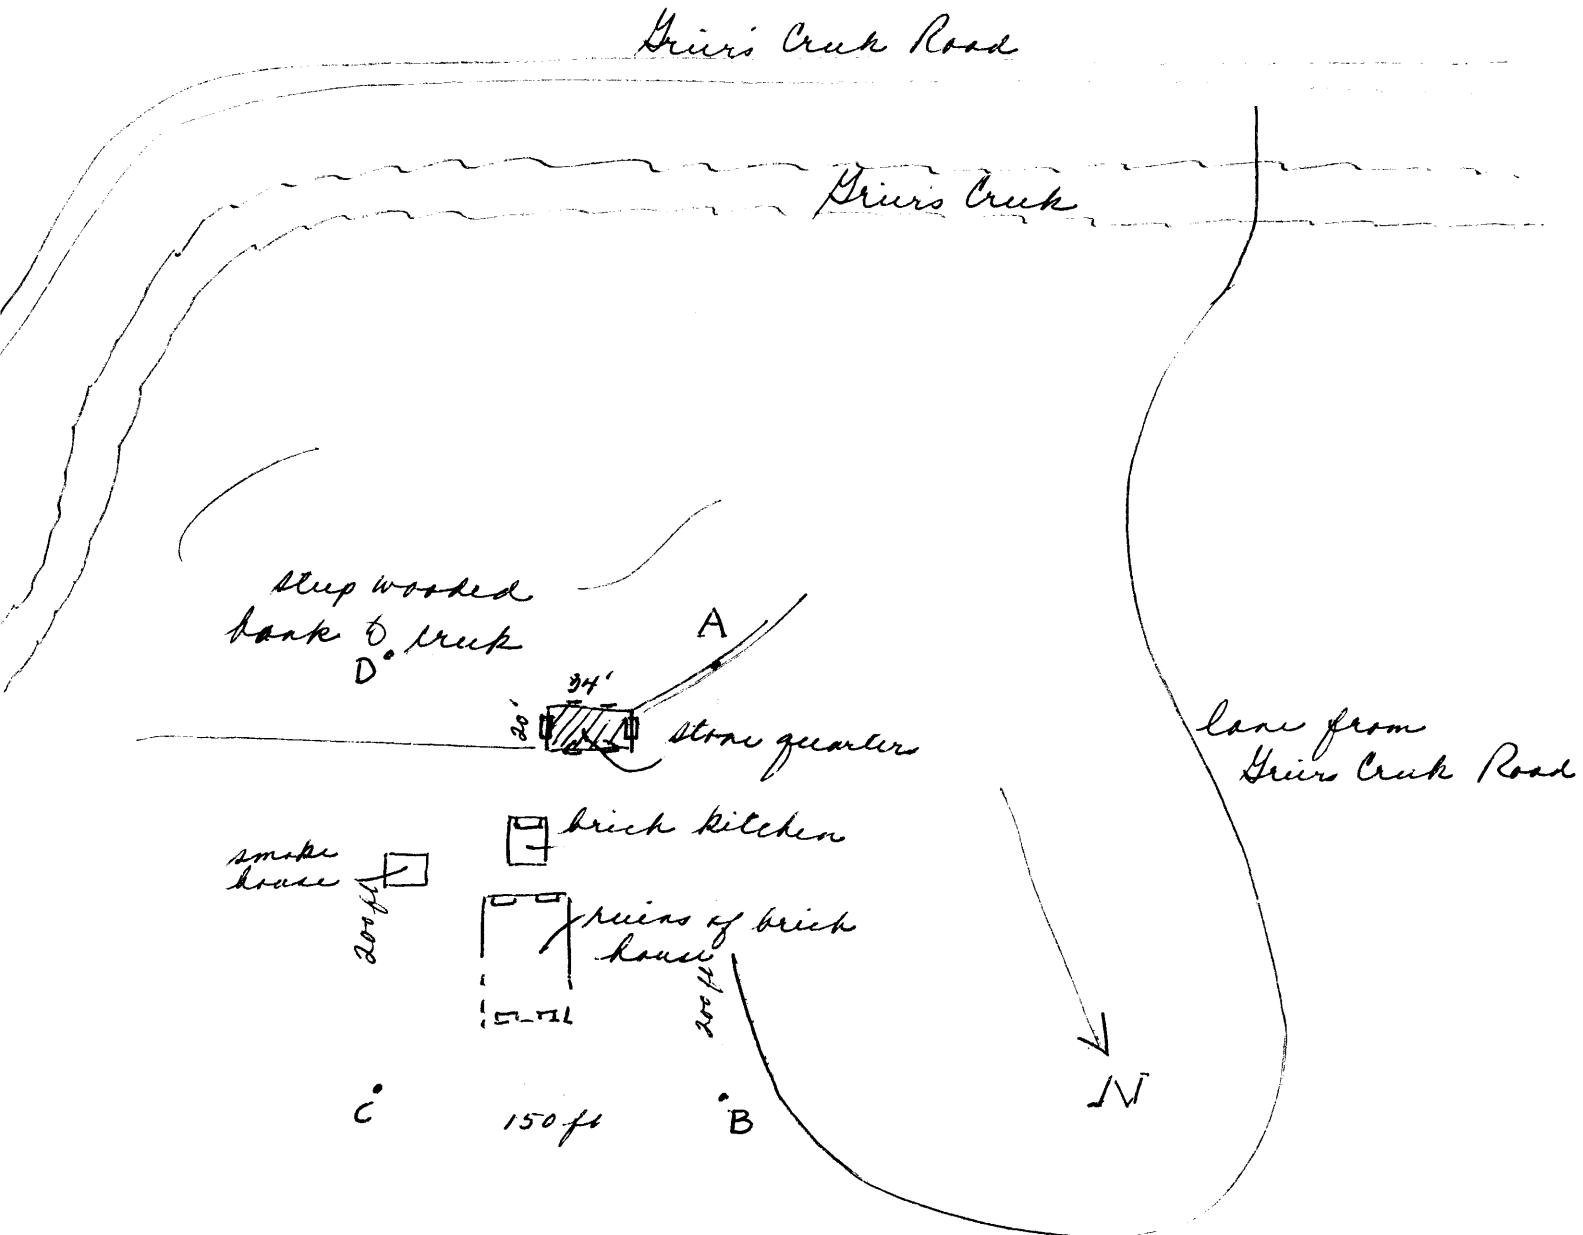 Grier's Creek Road
Griers Creek
steep wooded
bank to creek
D
A
34'
20'
stone quarters
lane from
Griers Creek Road
brick kitchen
smoke
house
200 ft
ruins of brick
house
200 ft
N
C
150 ft
B